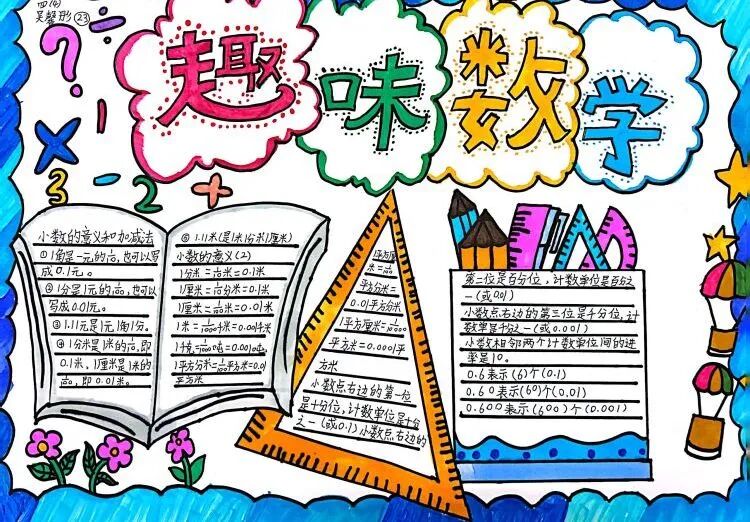 四(4)
吴馨彤 23
趣味数学
3 - 2 +
小数的意义和加减法
①1角是一元的1/10,也可以写
成0.1元。
②1分是1元的1/100,也可以
写成0.01元。
③1.11元是1元1角1分。
④1分米是1米的1/10,即
0.1米,1厘米是1米的
1/100,即0.01米。
⑤1.11米(是1米1分米1厘米)
小数的意义(2)
1分米=1/10米=0.1米
1厘米=1/10分米=0.1米
1厘米=1/100米=0.01米
1米=1/1000米=0.001米
1千克=1/1000吨=0.001吨
1平方分米=1/100平方米=0.01
平方米
1平方厘
米=1/100
平方分米=
0.01平方分米
1平方厘米=1/10000
平方米=0.0001平
方米
小数点右边的第一位
是十分位,计数单位是十分
之一(或0.1)小数点右边的
第二位是百分位,计数单位是百分之
一(或0.01)
小数点右边的第三位是千分位,计
数单是千分之一(或0.001)
小数相邻两个计数单位间的进
率是10。
0.6表示(6)个(0.1)
0.60表示(60)个(0.01)
0.600表示(600)个(0.001)